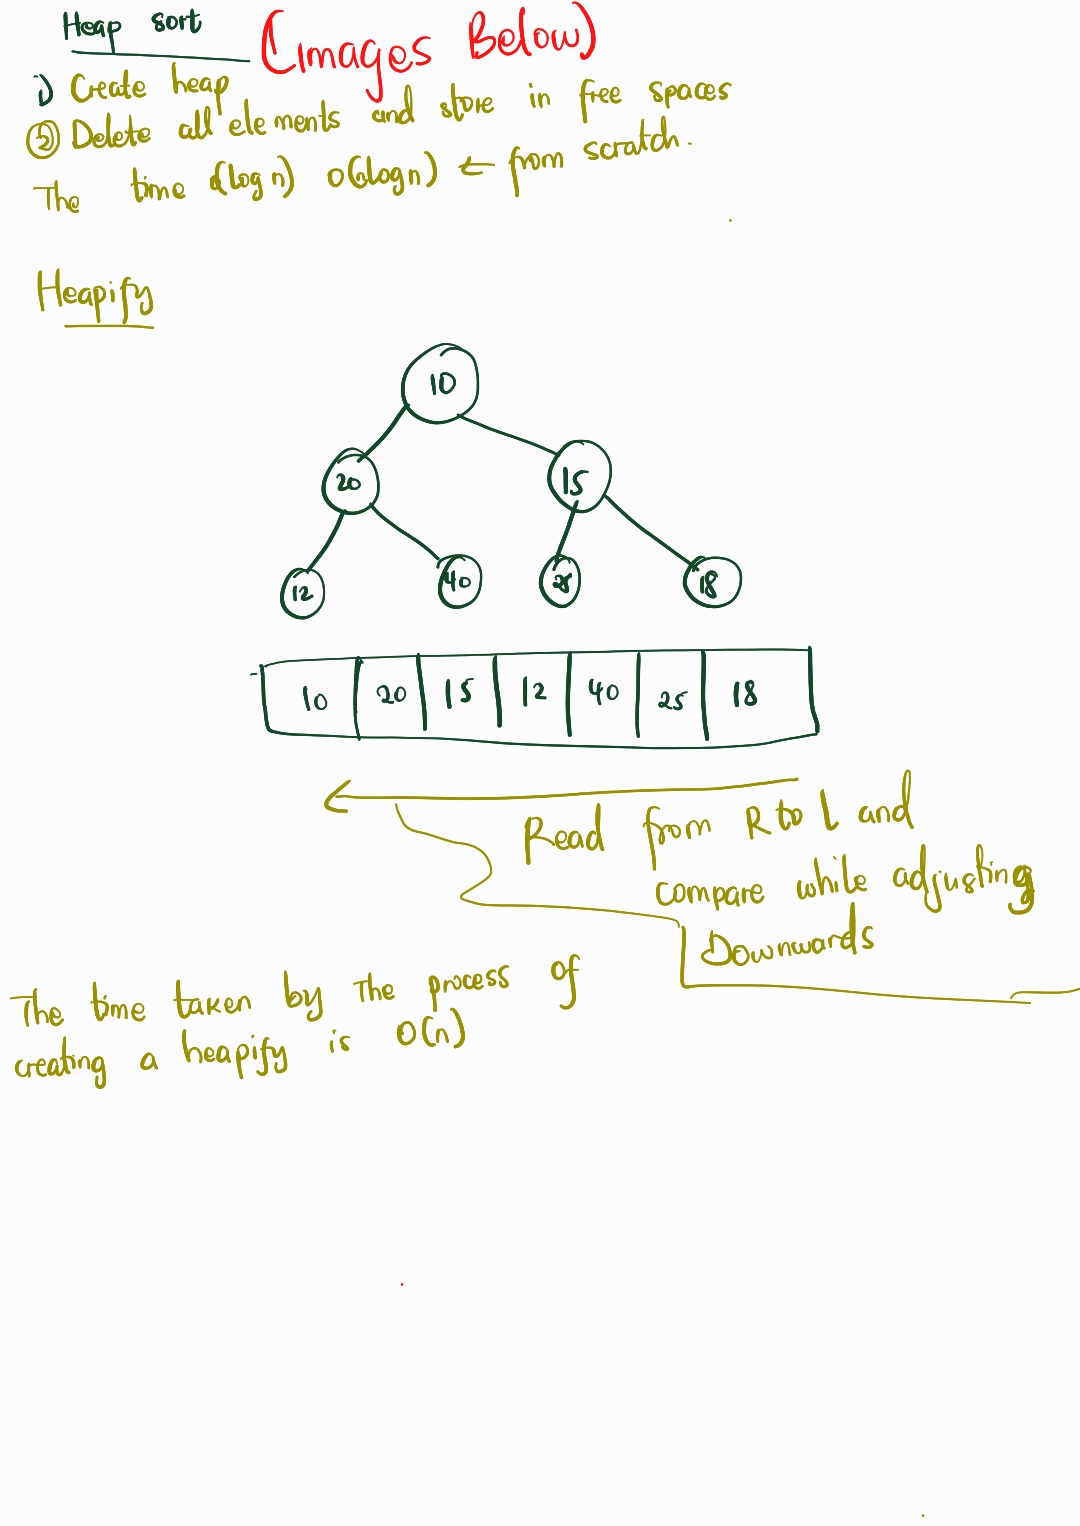 Heap sort (Images Below)
1) Create heap
② Delete all elements and store in free spaces
The time O(log n) O(nlogn) ← from scratch.
Heapify
10
20 15
12 40 25 18
10 20 15 12 40 25 18
Read from R to L and
compare while adjusting
Downwards
The time taken by The process of
creating a heapify is O(n)